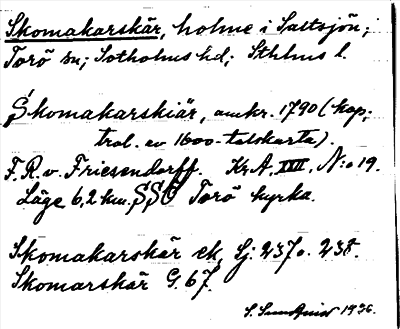 Skomakarskär, holme i Saltsjön;
Torö sn; Sotholms hd; Sthlms l.
Skomakarskiär, omkr. 1790 (kop;
trol. ev 1600-talskarta).
F. R. v. Friesendorff. Kr.A. XIII, N:o 19.
Läge 6,2 km. SSO Torö kyrka.
Skomakarskär ek, Lj: 237 o. 238.
Skomarskär G. 67.
S. Sundquist 1936.